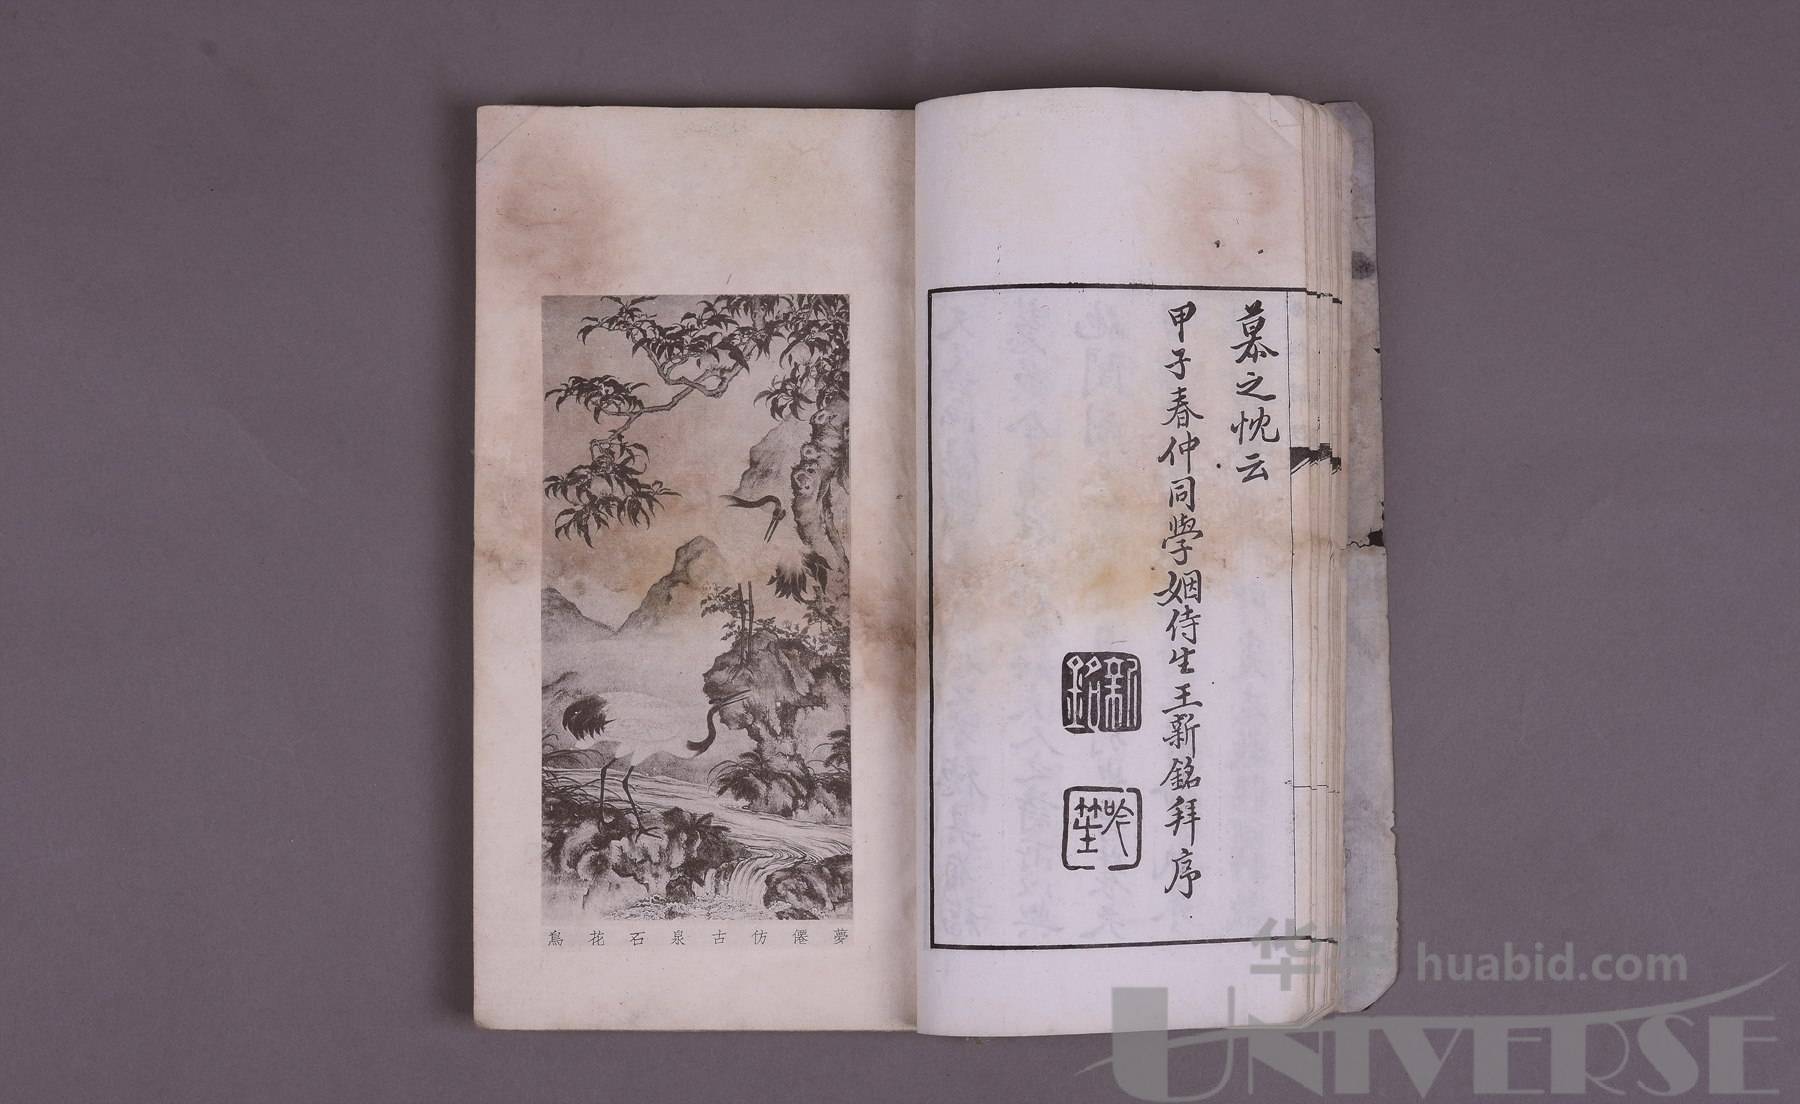 慕之忱云
甲子春仲同學姻侍生王新銘拜序
新銘
吟笙
夢僊仿古泉石花鳥
huabid.com
UNIVERSE